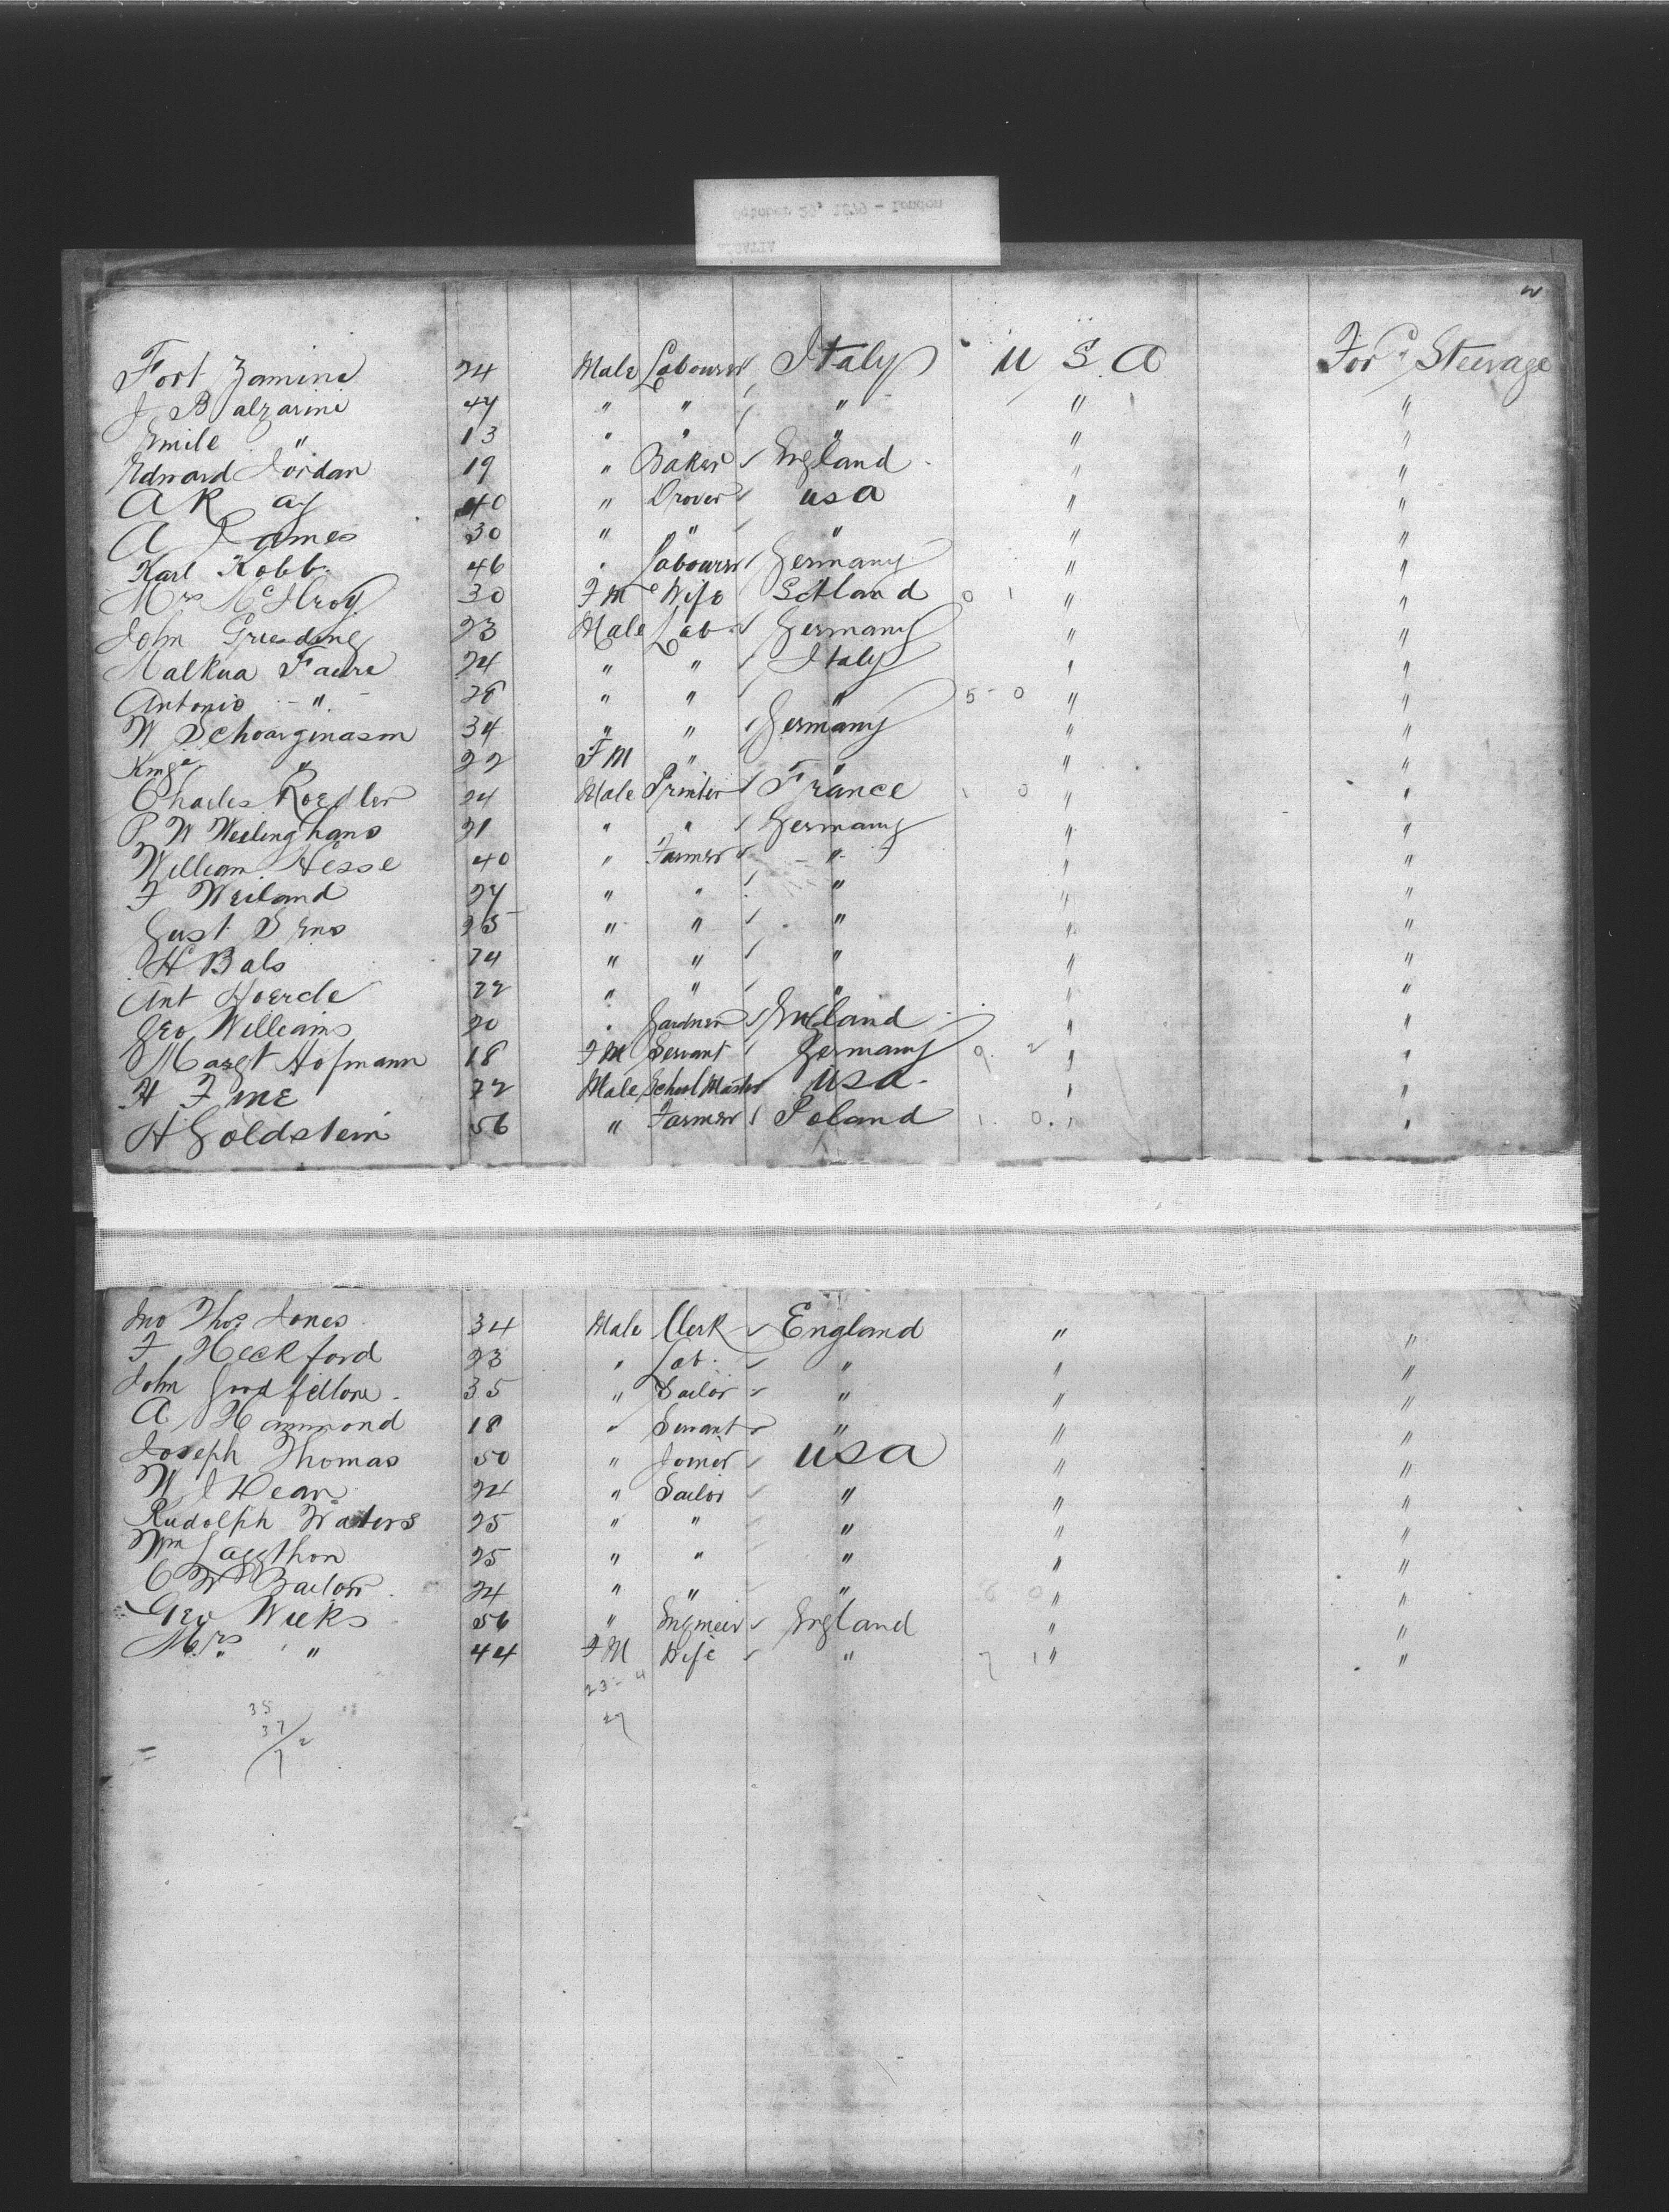 October 23, 1879 - London
2
Fort Zamina 24 Male Labourer Italy U S A For'd Steerage
J Balzarini 47 " " " " "
Emile " 13 " " " " "
Edward Jordan 19 " Baker England " "
A K ay 40 " Drover USA " "
A James 30 " " " " "
Karl Kobb 46 " Labourer Germany " "
Mrs McIlroy 30 FM Wife Scotland 0 1 " "
John Grieding 23 Male Lab. Germany " "
Malkua Faura 24 " " Italy " "
Antonio " 28 " " " 5 - 0 " "
W 34 " " Germany " "
22 FM " " " "
Charles Roedler 24 Male Printer France 1 0 " "
P W Weslinghans 21 " " Germany " "
William Hesse 40 " Farmer " " "
F Weiland 27 " " " " "
Gust Sens 25 " " " " "
H Bals 24 " " " " "
Ant Hoercle 22 " " " " "
Geo Williams 20 " Gardner England " "
Margt Hofmann 18 FM Servant Germany 9. 2 " "
H Fine 22 Male School Master USA - " "
H Goldstein 56 " Farmer Poland 1. 0. " "
Jno Thos Jones 34 Male Clerk England " "
F Heckford 23 " Lab. " " "
John Goodfellow 35 " Sailor " " "
A Hammond 18 " Servant " " "
Joseph Thomas 50 " Joiner USA " "
W J Dean 24 " Sailor " " "
Rudolph Waters 25 " " " " "
Wm 25 " " " " "
C W Bailow 24 " " " 6 0 " "
Geo Weeks 56 " Engineer England " "
Mrs " 44 FM Wife " 7 1 " "
23 - 4
35
37/2
27
7